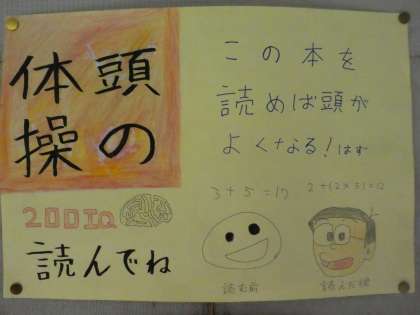 頭の
体操
この本を
読めば頭が
よくなる!はず
200IQ
読んでね
3+5=17
読む前
2+(2×5)=12
読んだ後